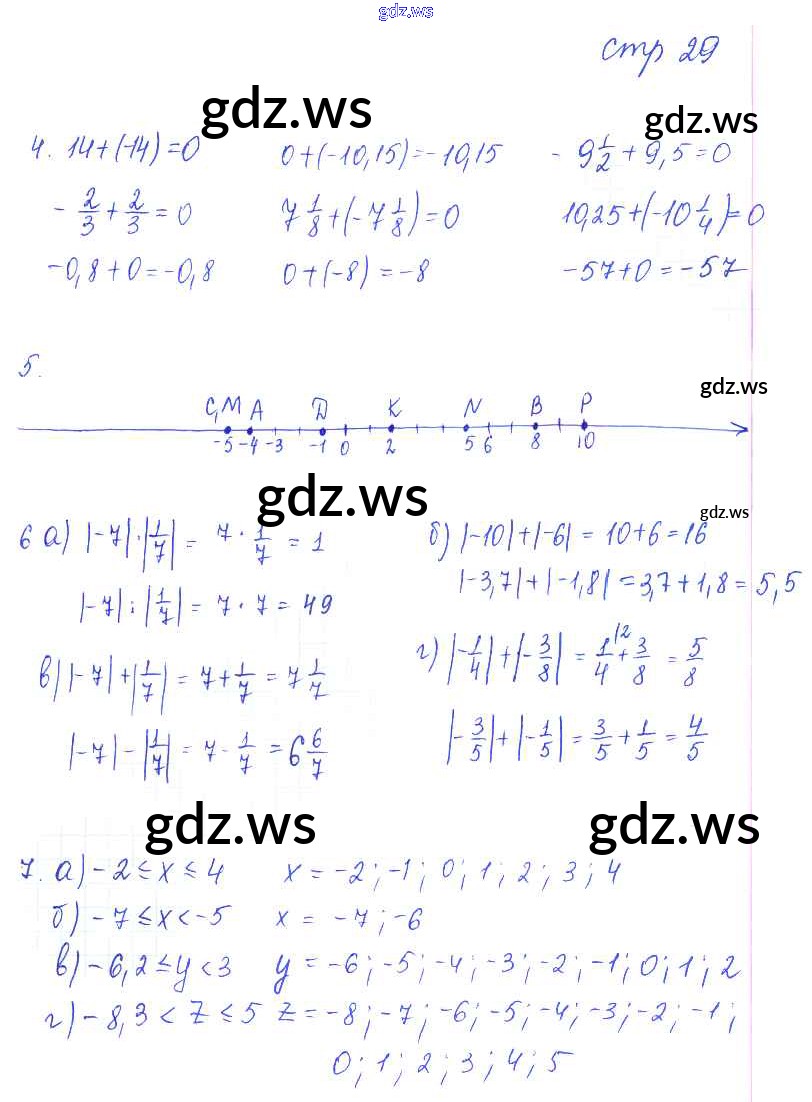 gdz.ws
стр 29
gdz.ws gdz.ws
4. 14+(-14)=0 0+(-10,15)=-10,15 -9 1/2 + 9,5=0
-2/3 + 2/3 = 0 7 1/8 + (-7 1/8) = 0 10,25+(-10 1/4)=0
-0,8+0=-0,8 0+(-8)=-8 -57+0=-57
5.
gdz.ws
C,M A D K N B P
-5 -4 -3 -1 0 2 5 6 8 10
gdz.ws
gdz.ws
6 а) |-7|·|1/7| = 7·1/7 = 1 б) |-10|+|-6| = 10+6=16
|-3,7|+|-1,8|=3,7+1,8=5,5
|-7|:|1/7| = 7·7=49
в) |-7|+|1/7| = 7+1/7 = 7 1/7 г) |-1/4|+|-3/8| = 1/4 |2 + 3/8 = 5/8
|-7|-|1/7| = 7-1/7 = 6 6/7 |-3/5|+|-1/5| = 3/5+1/5 = 4/5
gdz.ws gdz.ws
7. а) -2≤x≤4 x=-2; -1; 0; 1; 2; 3; 4
б) -7≤x<-5 x=-7; -6
в) -6,2≤y<3 y=-6; -5; -4; -3; -2; -1; 0; 1; 2
г) -8,3<z≤5 z=-8; -7; -6; -5; -4; -3; -2; -1;
0; 1; 2; 3; 4; 5